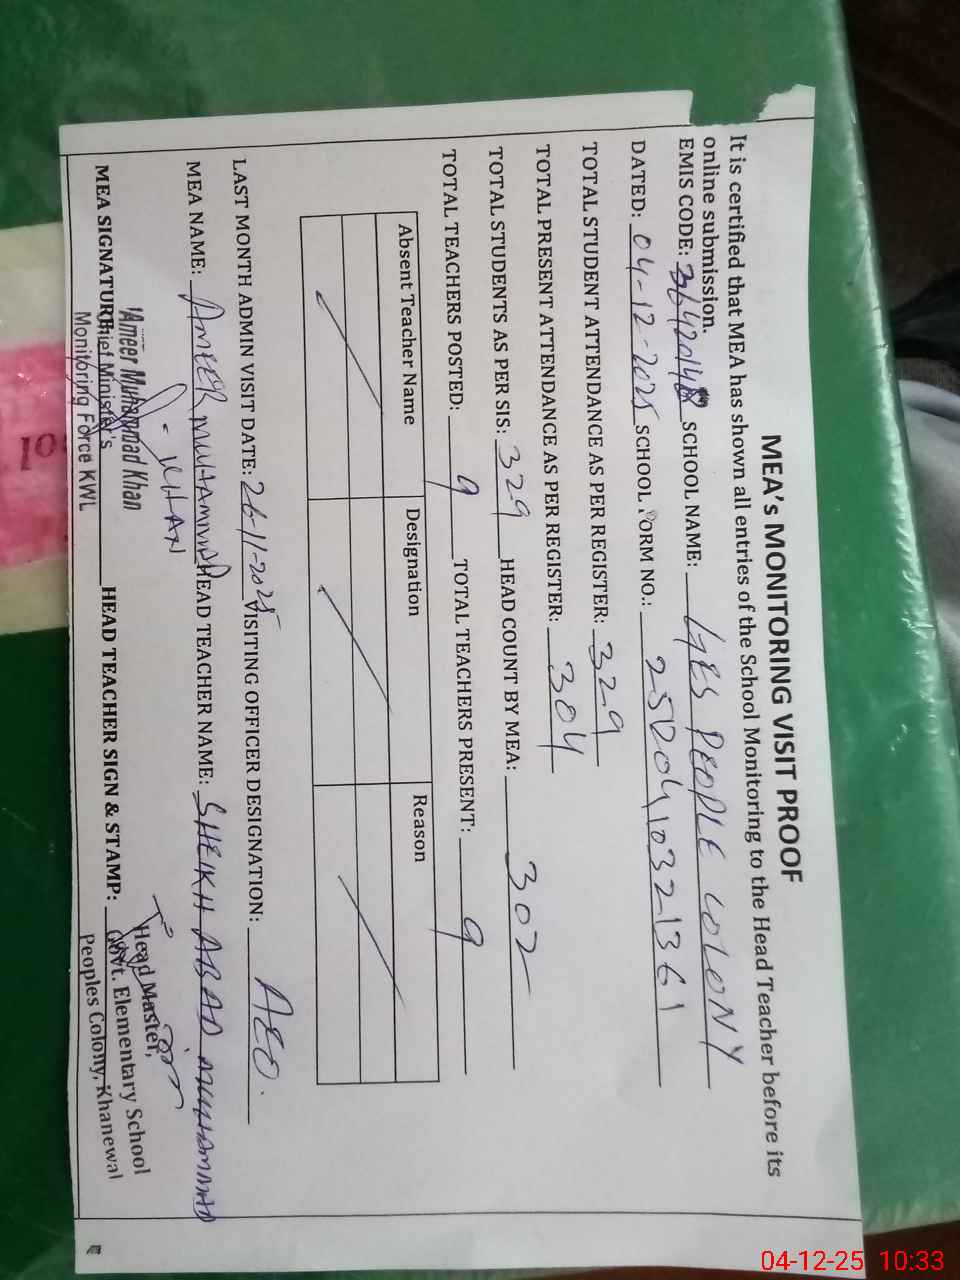 MEA's MONITORING VISIT PROOF
It is certified that MEA has shown all entries of the School Monitoring to the Head Teacher before its
online submission.
EMIS CODE: SCHOOL NAME: GES PEOPLE COLONY
DATED: 04-12-2025 SCHOOL FORM NO.: 25120410321361
TOTAL STUDENT ATTENDANCE AS PER REGISTER: 329
TOTAL PRESENT ATTENDANCE AS PER REGISTER: 304
TOTAL STUDENTS AS PER SIS: 329 HEAD COUNT BY MEA: 302
TOTAL TEACHERS POSTED: 9 TOTAL TEACHERS PRESENT: 9
Absent Teacher Name Designation Reason
LAST MONTH ADMIN VISIT DATE: 26-11-2025 VISITING OFFICER DESIGNATION: AEO.
MEA NAME: AMEER MUHAMMAD KHAN HEAD TEACHER NAME: SHEIKH ABAD MUHAMMAD
MEA SIGNATURE: HEAD TEACHER SIGN & STAMP:
Ameer Muhammad Khan
Chief Minister's
Monitoring Force KWL
Head Master,
Govt. Elementary School
Peoples Colony, Khanewal
04-12-25 10:33